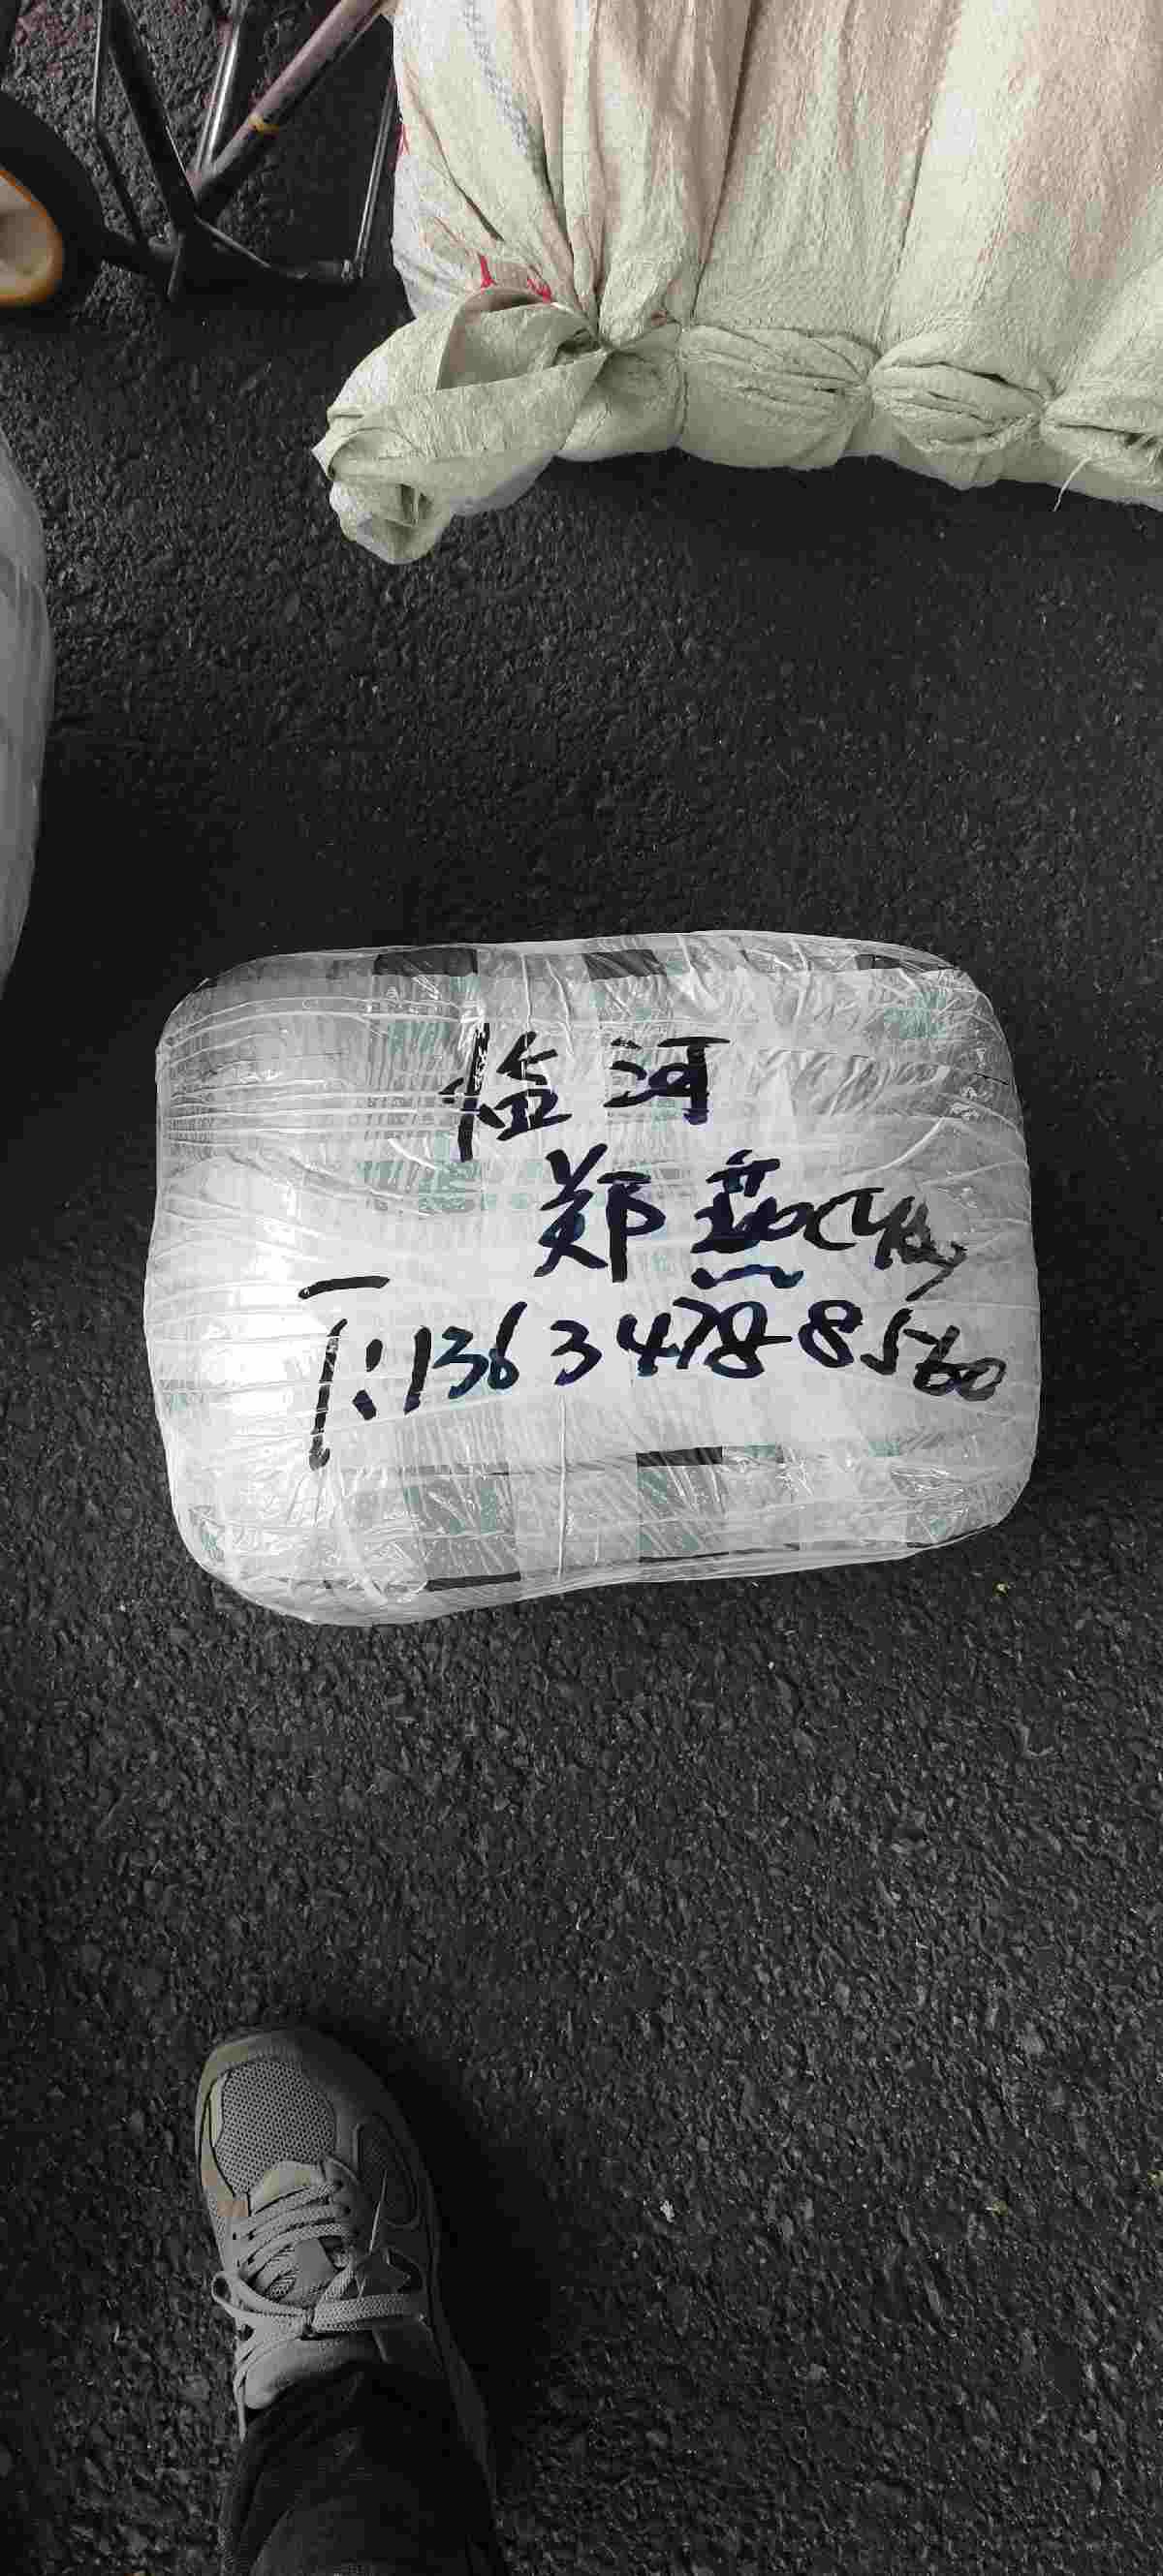 临河
郑燕
T:13634788560